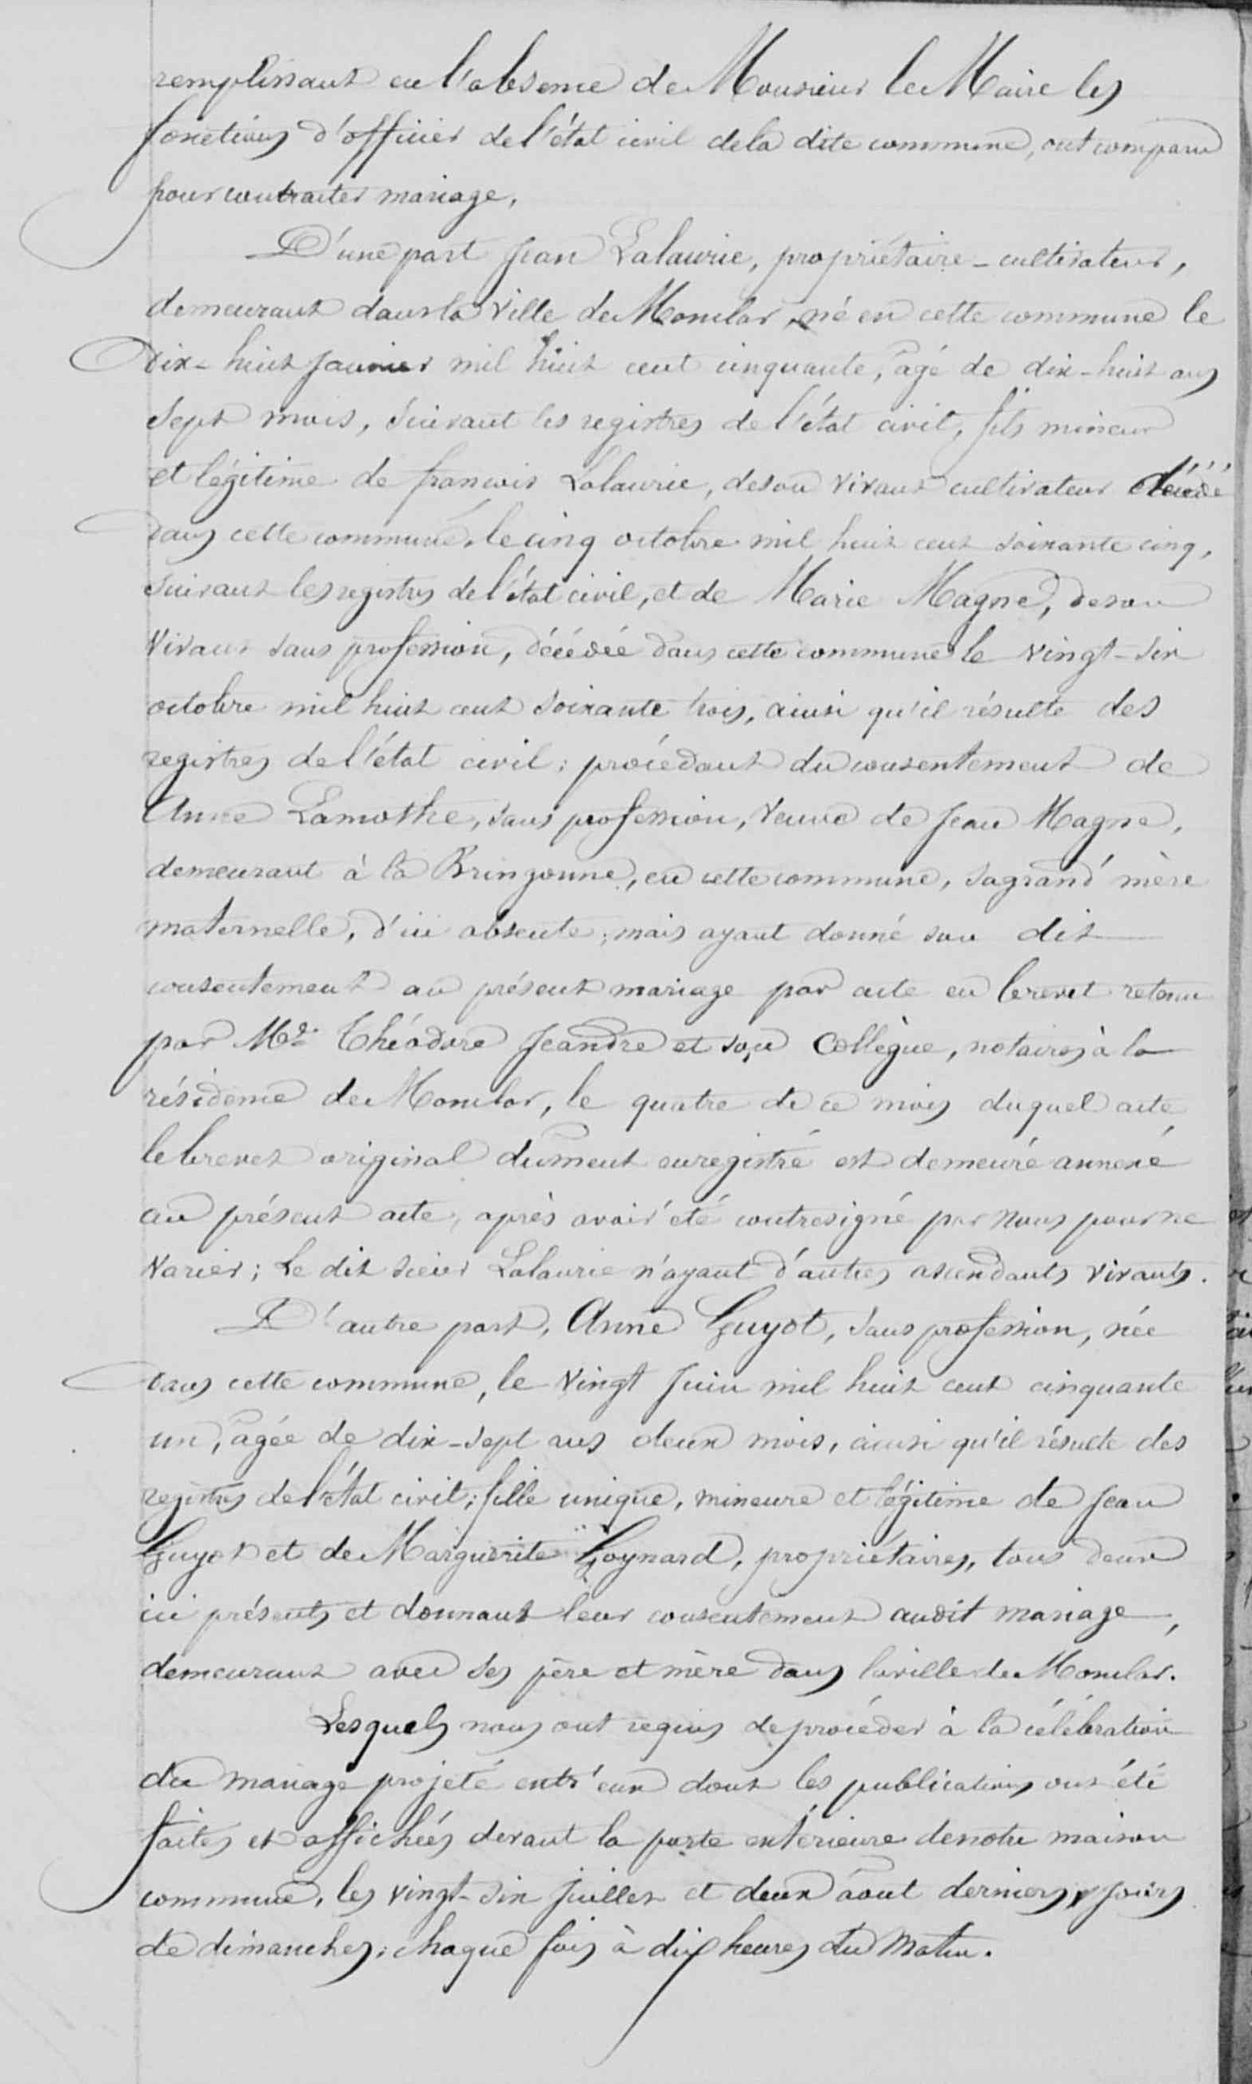 remplissant en l'absence de Monsieur le Maire les
fonctions d'officier de l'état civil de la dite commune, ont comparu
pour contracter mariage.
D'une part Jean Lalaurie, propriétaire-cultivateur,
demeurant dans la ville de Monclar, né en cette commune le
dix-huit Janvier mil huit cent cinquante, âgé de dix-huit ans
sept mois, suivant les registres de l'état civil, fils mineur
et légitime de françois Lalaurie, de son vivant cultivateur décédé
dans cette commune, le cinq octobre mil huit cent soixante cinq,
suivant les registres de l'état civil, et de Marie Magne, de son
vivant sans profession, décédée dans cette commune le vingt-six
octobre mil huit cent soixante trois, ainsi qu'il résulte des
registres de l'état civil; procédant du consentement de
Anne Lamothe, sans profession, veuve de Jean Magne,
demeurant à la Bringonne, en cette commune, sa grand'mère
maternelle, d'ici absente; mais ayant donné son dit
consentement au présent mariage par acte en brevet retenu
par Me. Théodore Jeandre et son Collègue, notaires à la
résidence de Monclar, le quatre de ce mois duquel acte
le brevet original dûment enregistré est demeuré annexé
au présent acte, après avoir été contresigné par nous pour ne
varier; Le dit sieur Lalaurie n'ayant d'autres ascendants vivants.
D'autre part, Anne Guyot, sans profession, née
dans cette commune, le vingt Juin mil huit cent cinquante
un, âgée de dix-sept ans deux mois, ainsi qu'il résulte des
registres de l'état civil; fille unique, mineure et légitime de Jean
Guyot et de Marguerite Goynard, propriétaires, tous deux
ici présents et donnant leur consentement audit mariage,
demeurant avec ses père et mère dans la ville de Monclar.
Lesquels nous ont requis de procéder à la célébration
du mariage projeté entr'eux dont les publications ont été
faites et affichées devant la porte extérieure de notre maison
commune, les vingt-six Juillet et deux août derniers, jours
de dimanches; chaque fois à dix heures du matin.